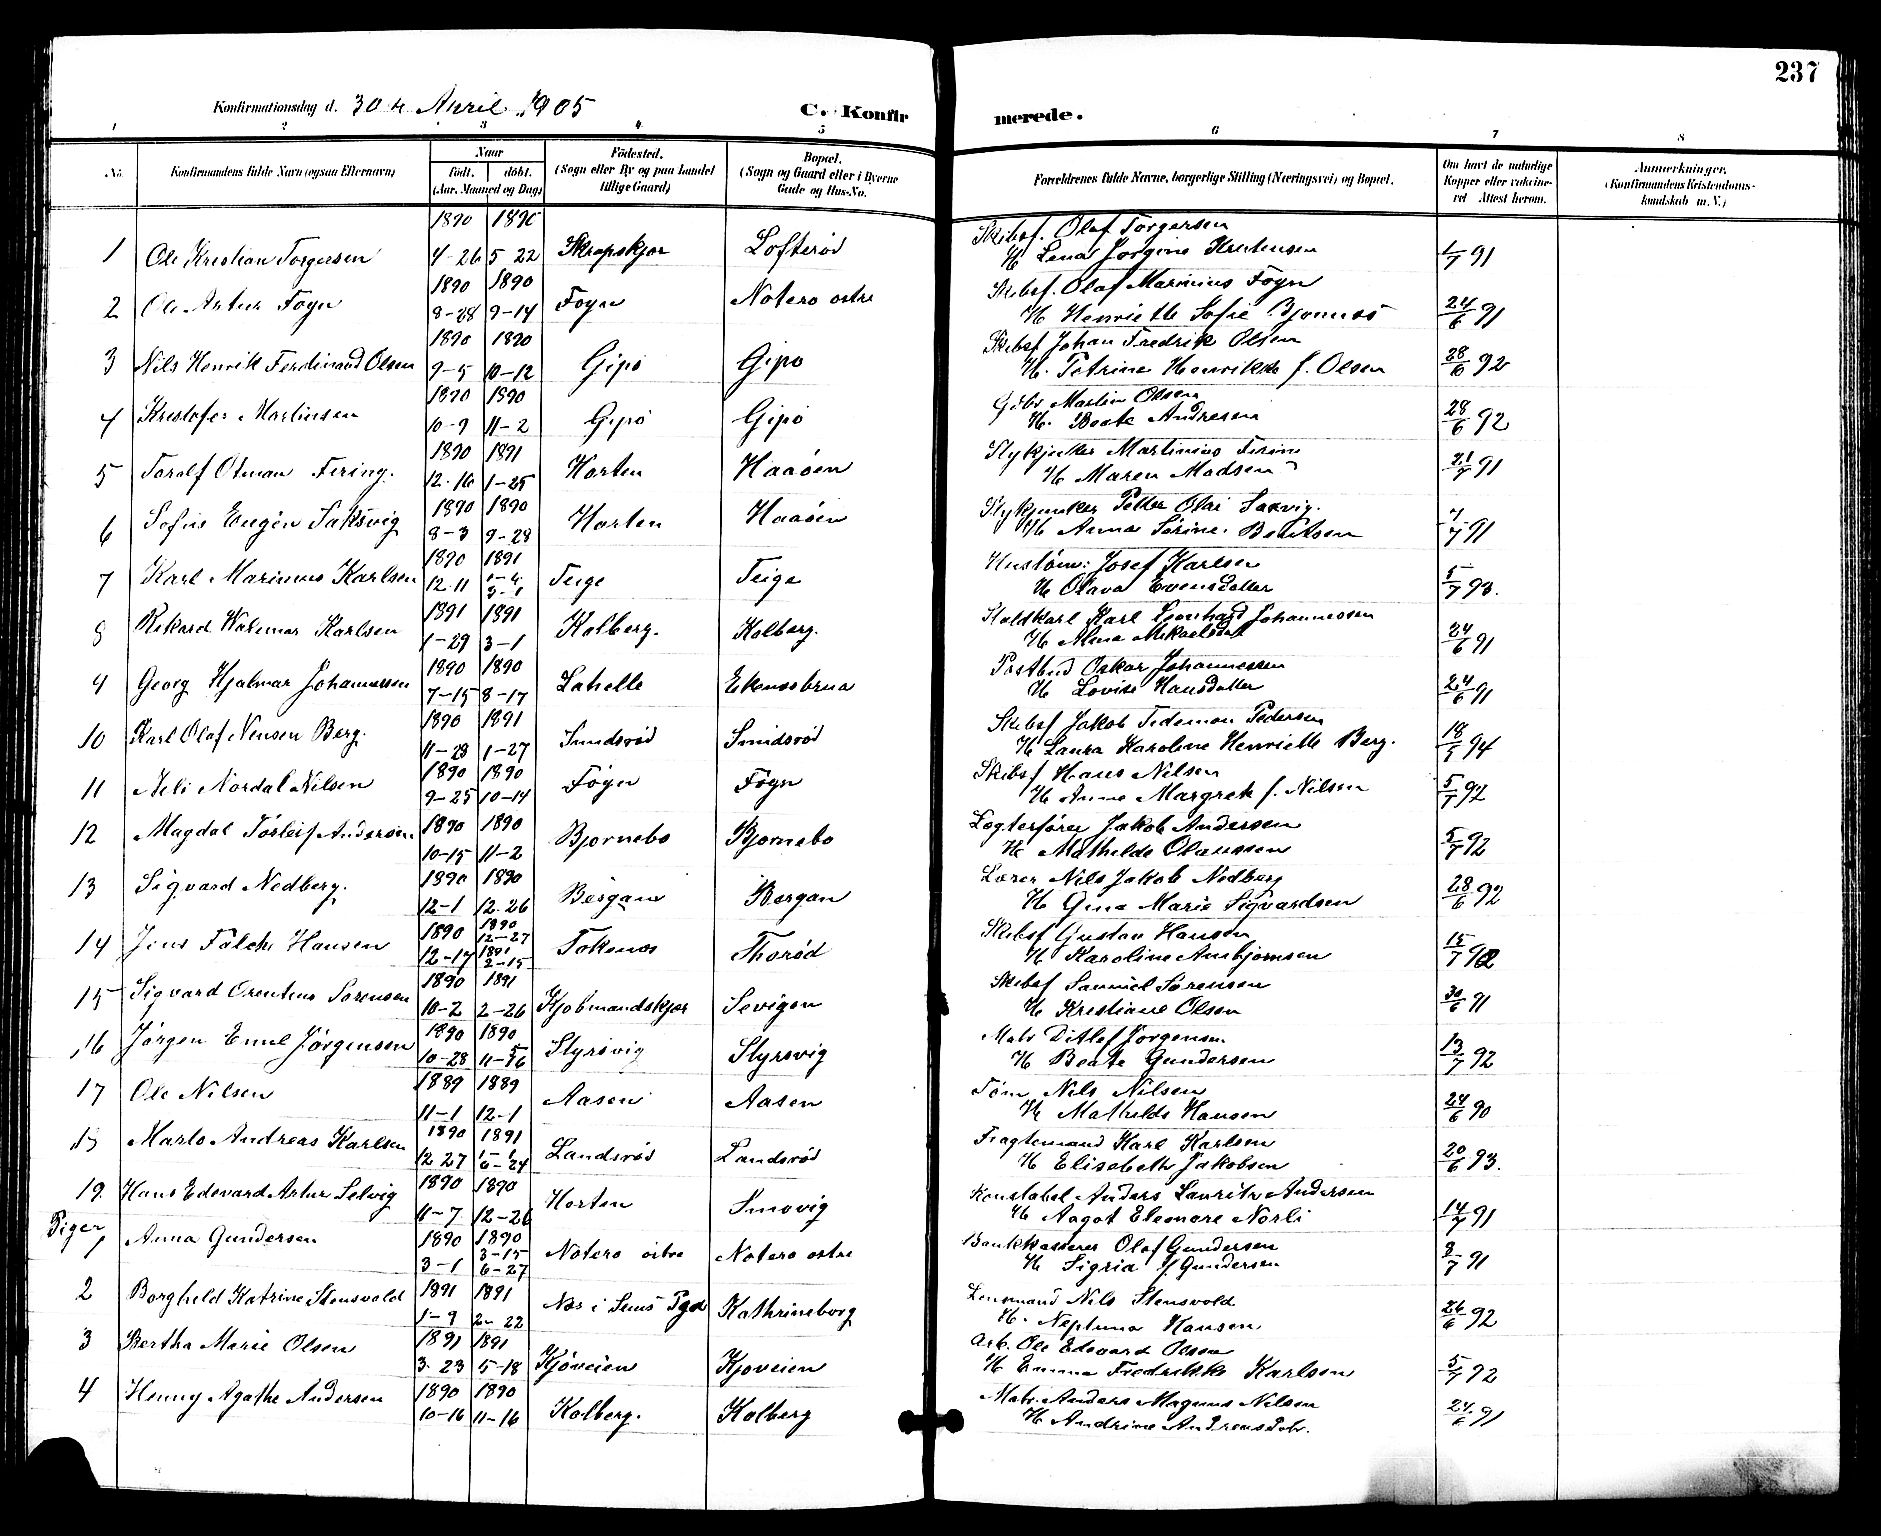 237
Konfirmationsdag d. 30te April 1905 C. Konfir merede.
1 2 3 4 5 6 7 8
No. Konfirmandens fulde Navn (ogsaa Efternavn) Naar Födested. Bopæl. Forældrenes fulde Navne, borgerlige Stilling (Næringsvei) og Bopæl. Om havt de naturlige Anmerkninger.
födt. döbt. (Sogn eller By og paa Landet (Sogn og Gaard eller i Byerne Kopper eller vakcine- (Konfirmandens Kristendoms-
(Aar, Maaned og Dag) tillige Gaard) Gade og Hus-No. ret Attest herom. kundskab m. V.)
1890 1890 Skibsf. Olaf Torgersen
1 Ole Kristian Torgersen 4-26 5 22 Skrapskjær Lofterød H Lena Jorgine Kristensen 1/7 91
1890 1890 Skibsf. Olaf Marinius Föyn
2 Ole Artur Föyn 8-28 9-14 Föyn Notero ostre H Henriette Sofie Bjonness 24/6 91
1890 1890 Skibsf Johan Fredrik Olsen
3 Nils Henrik Ferdinand Olsen 9-5 10-12 Gipö Gipö H. Petrine Henrikke f. Olsen 28/6 92
1890 1890 Martin Olsen
4 Kristofer Martinsen 10-9 11-2 Gipö Gipö H. Beate Andresen 28/6 92
1890 1891 Stykjunker Martinius Fering
5 Toralf Otman Fering. 12-16 1-25 Horten Haaöen H Maren Madsen 21/7 91
1890 1890 Stykjunker Petter Olai Saxvig.
6 Sofus Eugèn Saksvig 8-3 9-28 Horten Haaöen H Anna Sörine Bentsen 7/7 91
1890 1891 Hustöm: Josef Karlsen
7 Karl Marinius Karlsen 12-11 Teige Teige H Olava Evensdatter 5/7 93.
1891 1891 Staldkarl Karl Leonhard Johannessen
8 Rikard Waldemar Karlsen 1-29 3-1 Kolberg. Kolberg. H Alma Mikaelsdat 24/6 91
1890 1890 Postbud Oskar Johannessen
9 Georg Hjalmar Johannessen 7-15 8-17 Lahelle Ekenesbrua H Lovise Hansdatter 24/6 91
1890 1891 Skibsf Jakob Tideman Pedersen
10 Karl Olaf Nensen Berg. 11-28 1-27 Smidsröd Smidsröd H Laura Karoline Henriette Berg. 18/5 94
1890 1890 Skibsf Hans Nilsen
11 Neli Nordal Nilsen 9-25 10-14 Föyn Föyn H Anne Margrete f. Nilsen 5/7 92
1890 1890 Lægterförer Jakob Andersen
12 Magdal Törleif Andersen 10-15 11-2 Bjornebo Bjornebo H Mathilde Olaussen 5/7 92
1890 1890 Lærer Nils Jakob Nedberg
13 Sigvard Nedberg. 12-1 12-26 Bergan Bergan H Gina Marie Sigvardsen 28/6 92
1890 1890 12-27 Skibsf Gustav Hansen
14 Jens Falck Hansen 12-17 1891 2-15 Tokenes Thoröd H Karoline Ambjornsen 15/7 92
1890 1891 Skibsf Samuel Sörensen
15 Sigvard Orentius Sorensen 10-2 2-26 Kjobmandskjær Sevigen H Kristiane Olsen 30/6 91
1890 1890 Matr Ditlef Jörgensen
16 Jörgen Emil Jörgensen 10-28 Styrsvig Styrsvig H Beate Gundersen 13/7 92
1889 1889 Töm Nils Nilsen
17 Ole Nilsen 11-1 12-1 Aasen Aasen H Mathilde Hansen 24/6 90
1890 1891 Fragtemand Karl Karlsen
18 Marlo Andreas Karlsen 12 27 6-24 Landsröd Landsröd H Elisebeth Jakobsen 20/6 93.
1890 1890 Konstabel Anders Lauritz Andersen
19. Hans Edevard Artur Selvig 11-7 12-26 Horten Smovig H Aagot Eleonore Norli 14/7 91
Piger 1890 1890 Bankkasserer Olaf Gundersen
1 Anna Gundersen 3-1 3-15 6-27 Notero östre Notero ostre H Sigria f Gundersen 8/7 91
1891 1891 Lensmand Nils Stensvold
2 Borghild Katrine Stensvold 1-9 2-22 Næs i Sems Pgd Kathrineborg H. Neptuna Hansen 26/6 92
1891 1891 Arb. Ole Edevard Olsen
3 Bertha Marie Olsen 3-23 5-18 Kjöveien Kjoveien H Emma Fredrikke Karlsen 5/7 92
1890 1890 Matr Anders Magnus Nilsen
4 Henny Agathe Andersen 10-16 11-16 Kolberg. Kolberg H Andrine Andreasdtr. 24/6 91